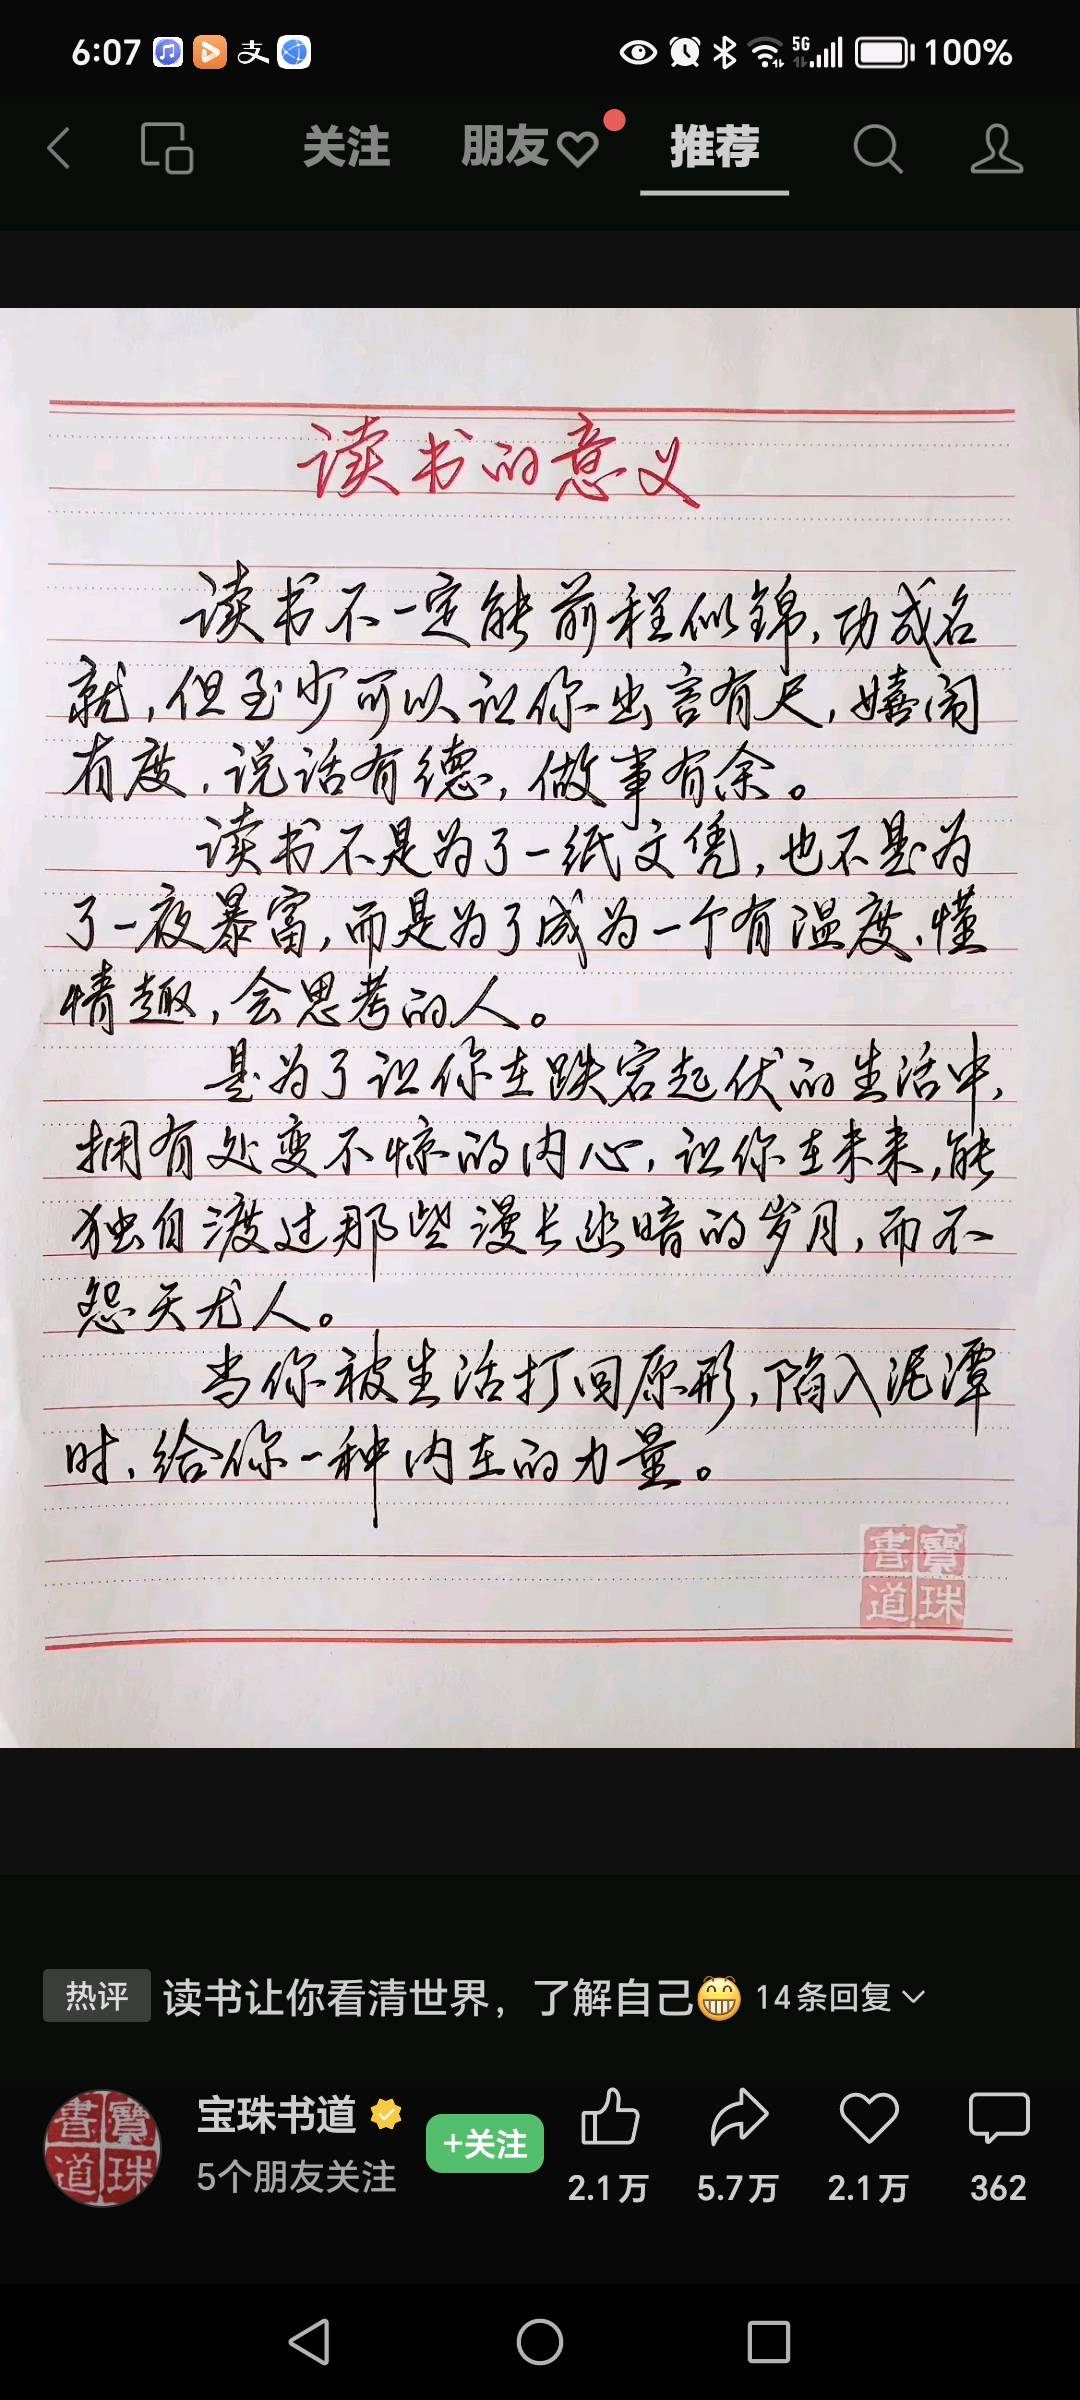 6:07 支 5G 100%
关注 朋友 推荐
读书的意义
读书不一定能前程似锦,功成名
就,但至少可以让你出言有尺,嬉闹
有度,说话有德,做事有余。
读书不是为了一纸文凭,也不是为
了一夜暴富,而是为了成为一个有温度、懂
情趣,会思考的人。
是为了让你在跌宕起伏的生活中,
拥有处变不惊的内心,让你在未来,能
独自渡过那些漫长幽暗的岁月,而不
怨天尤人。
当你被生活打回原形,陷入泥潭
时,给你一种内在的力量。
寶珠書道
热评 读书让你看清世界，了解自己😁 14条回复
寶珠書道
宝珠书道
5个朋友关注
+关注
2.1万 5.7万 2.1万 362